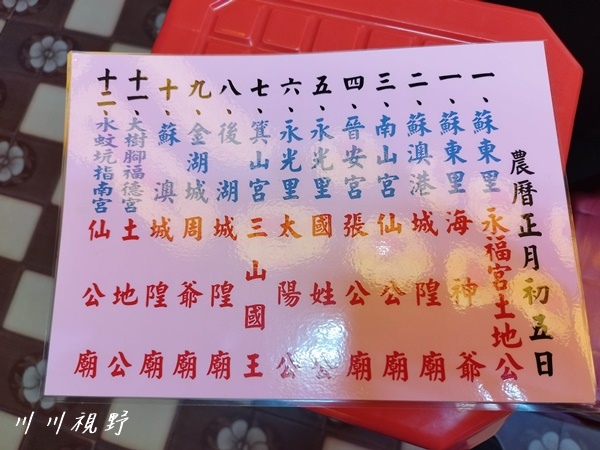 農曆正月初五日
一、蘇東里永福宮土地公
一、蘇東里海神爺
二、蘇澳港城隍廟
三、南山宮仙公廟
四、晉安宮張公廟
五、永光里國姓公
六、永光里太陽公
七、箕山宮三山國王
八、後湖城隍廟
九、金湖城周爺廟
十、蘇澳城隍廟
十一、大樹腳福德宮土地公
十二、水蚊坑指南宮仙公廟
川川視野